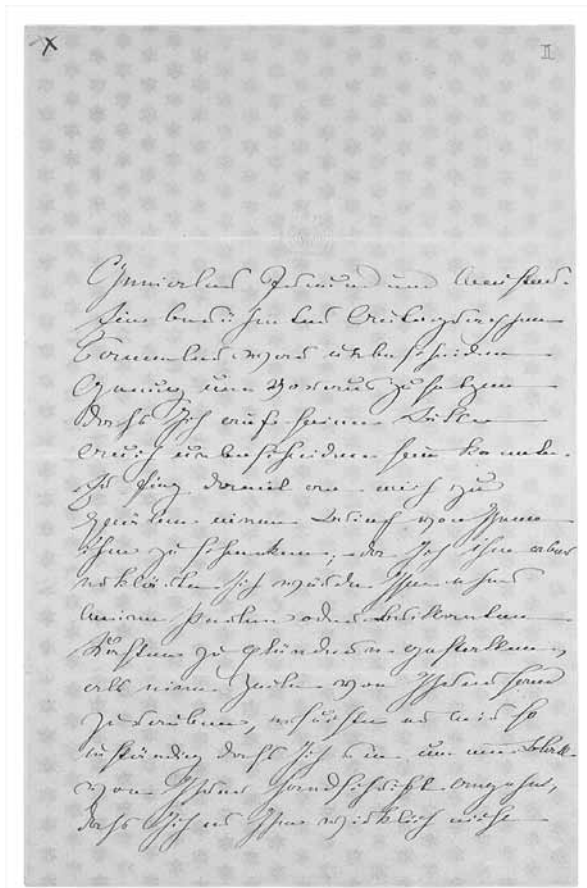 X
II
Genialer Freund und Meister.
Ein berühmter Autographen
Sammler war unbescheiden
Genug um voraus zu setzen
dahs Ich auf seine Bitte
auch unbescheiden sein konnte.
Er fing damit an mich zu
quälen einen Brief von Ihnen
ihm zu schenken; da Ich ihm aber
erklärte Ich würde Ihm eher
meine Perlen oder Brillanten
Kästen zu plündern gestatten,
als eine Zeile von Ihrer Hand
zu rauben, ersuchte er mich so
inständig dahs Ich Sie um ein Blatt
von Ihrer Handschrift angehe,
dahs Ich es Ihm wirklich nicht